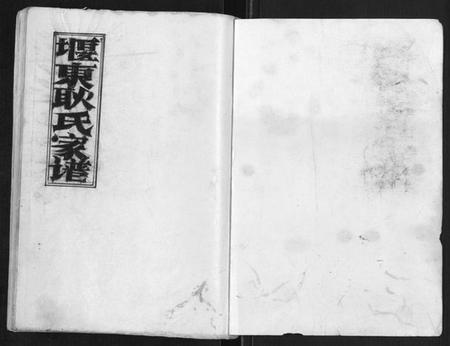 堰東耿氏家谱